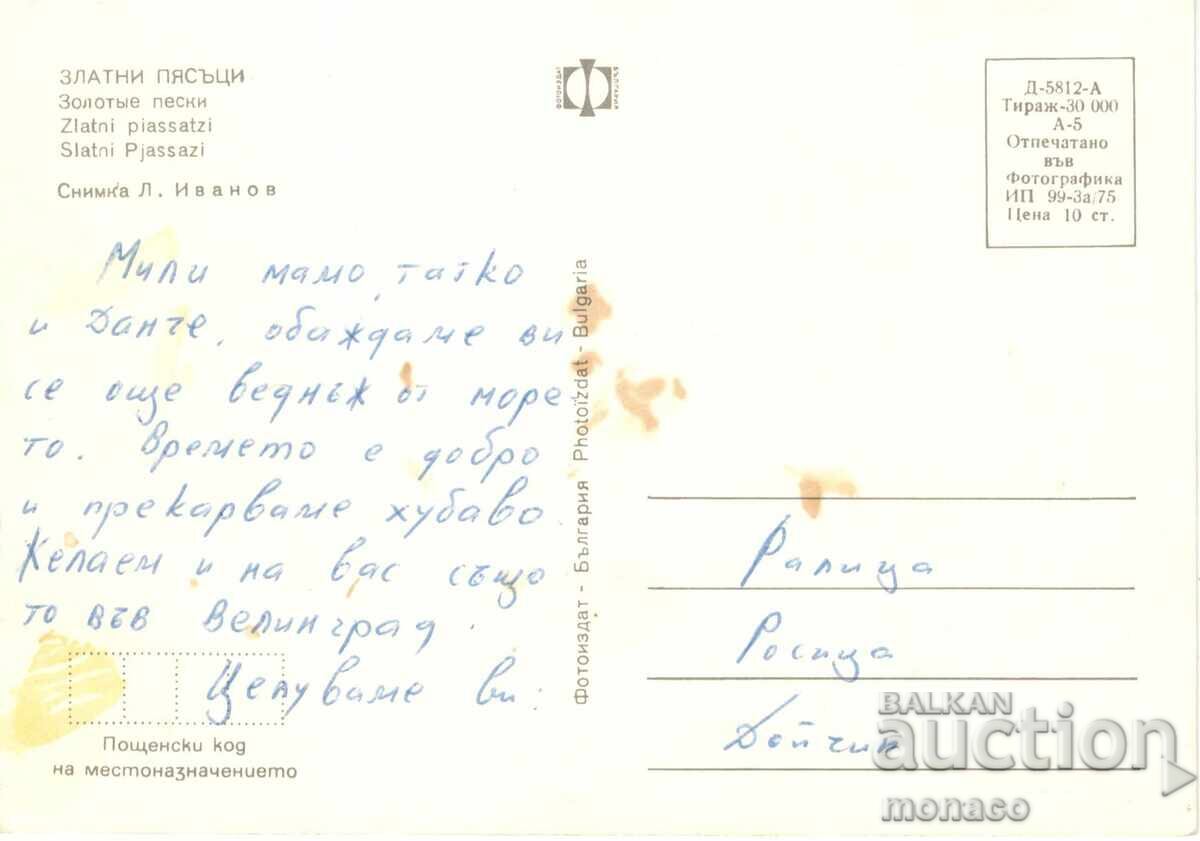 ЗЛАТНИ ПЯСЪЦИ
Золотые пески
Zlatni piassatzi
Slatni Pjassazi
Снимка Л. Иванов
ФОТОИЗДАТ
БЪЛГАРИЯ
Д-5812-А
Тираж-30 000
А-5
Отпечатано
във
Фотографика
ИП 99-3а/75
Цена 10 ст.
Мили мамо, татко
и Данче, обаждаме ви
се още веднъж от море
то. Времето е добро
и прекарваме хубаво.
Желаем и на вас също
то във Велинград.
Целуваме ви:
Пощенски код
на местоназначението
Фотоиздат - България Photoizdat - Bulgaria
Ралица
Росица
Дойчин
BALKAN
auction
monaco